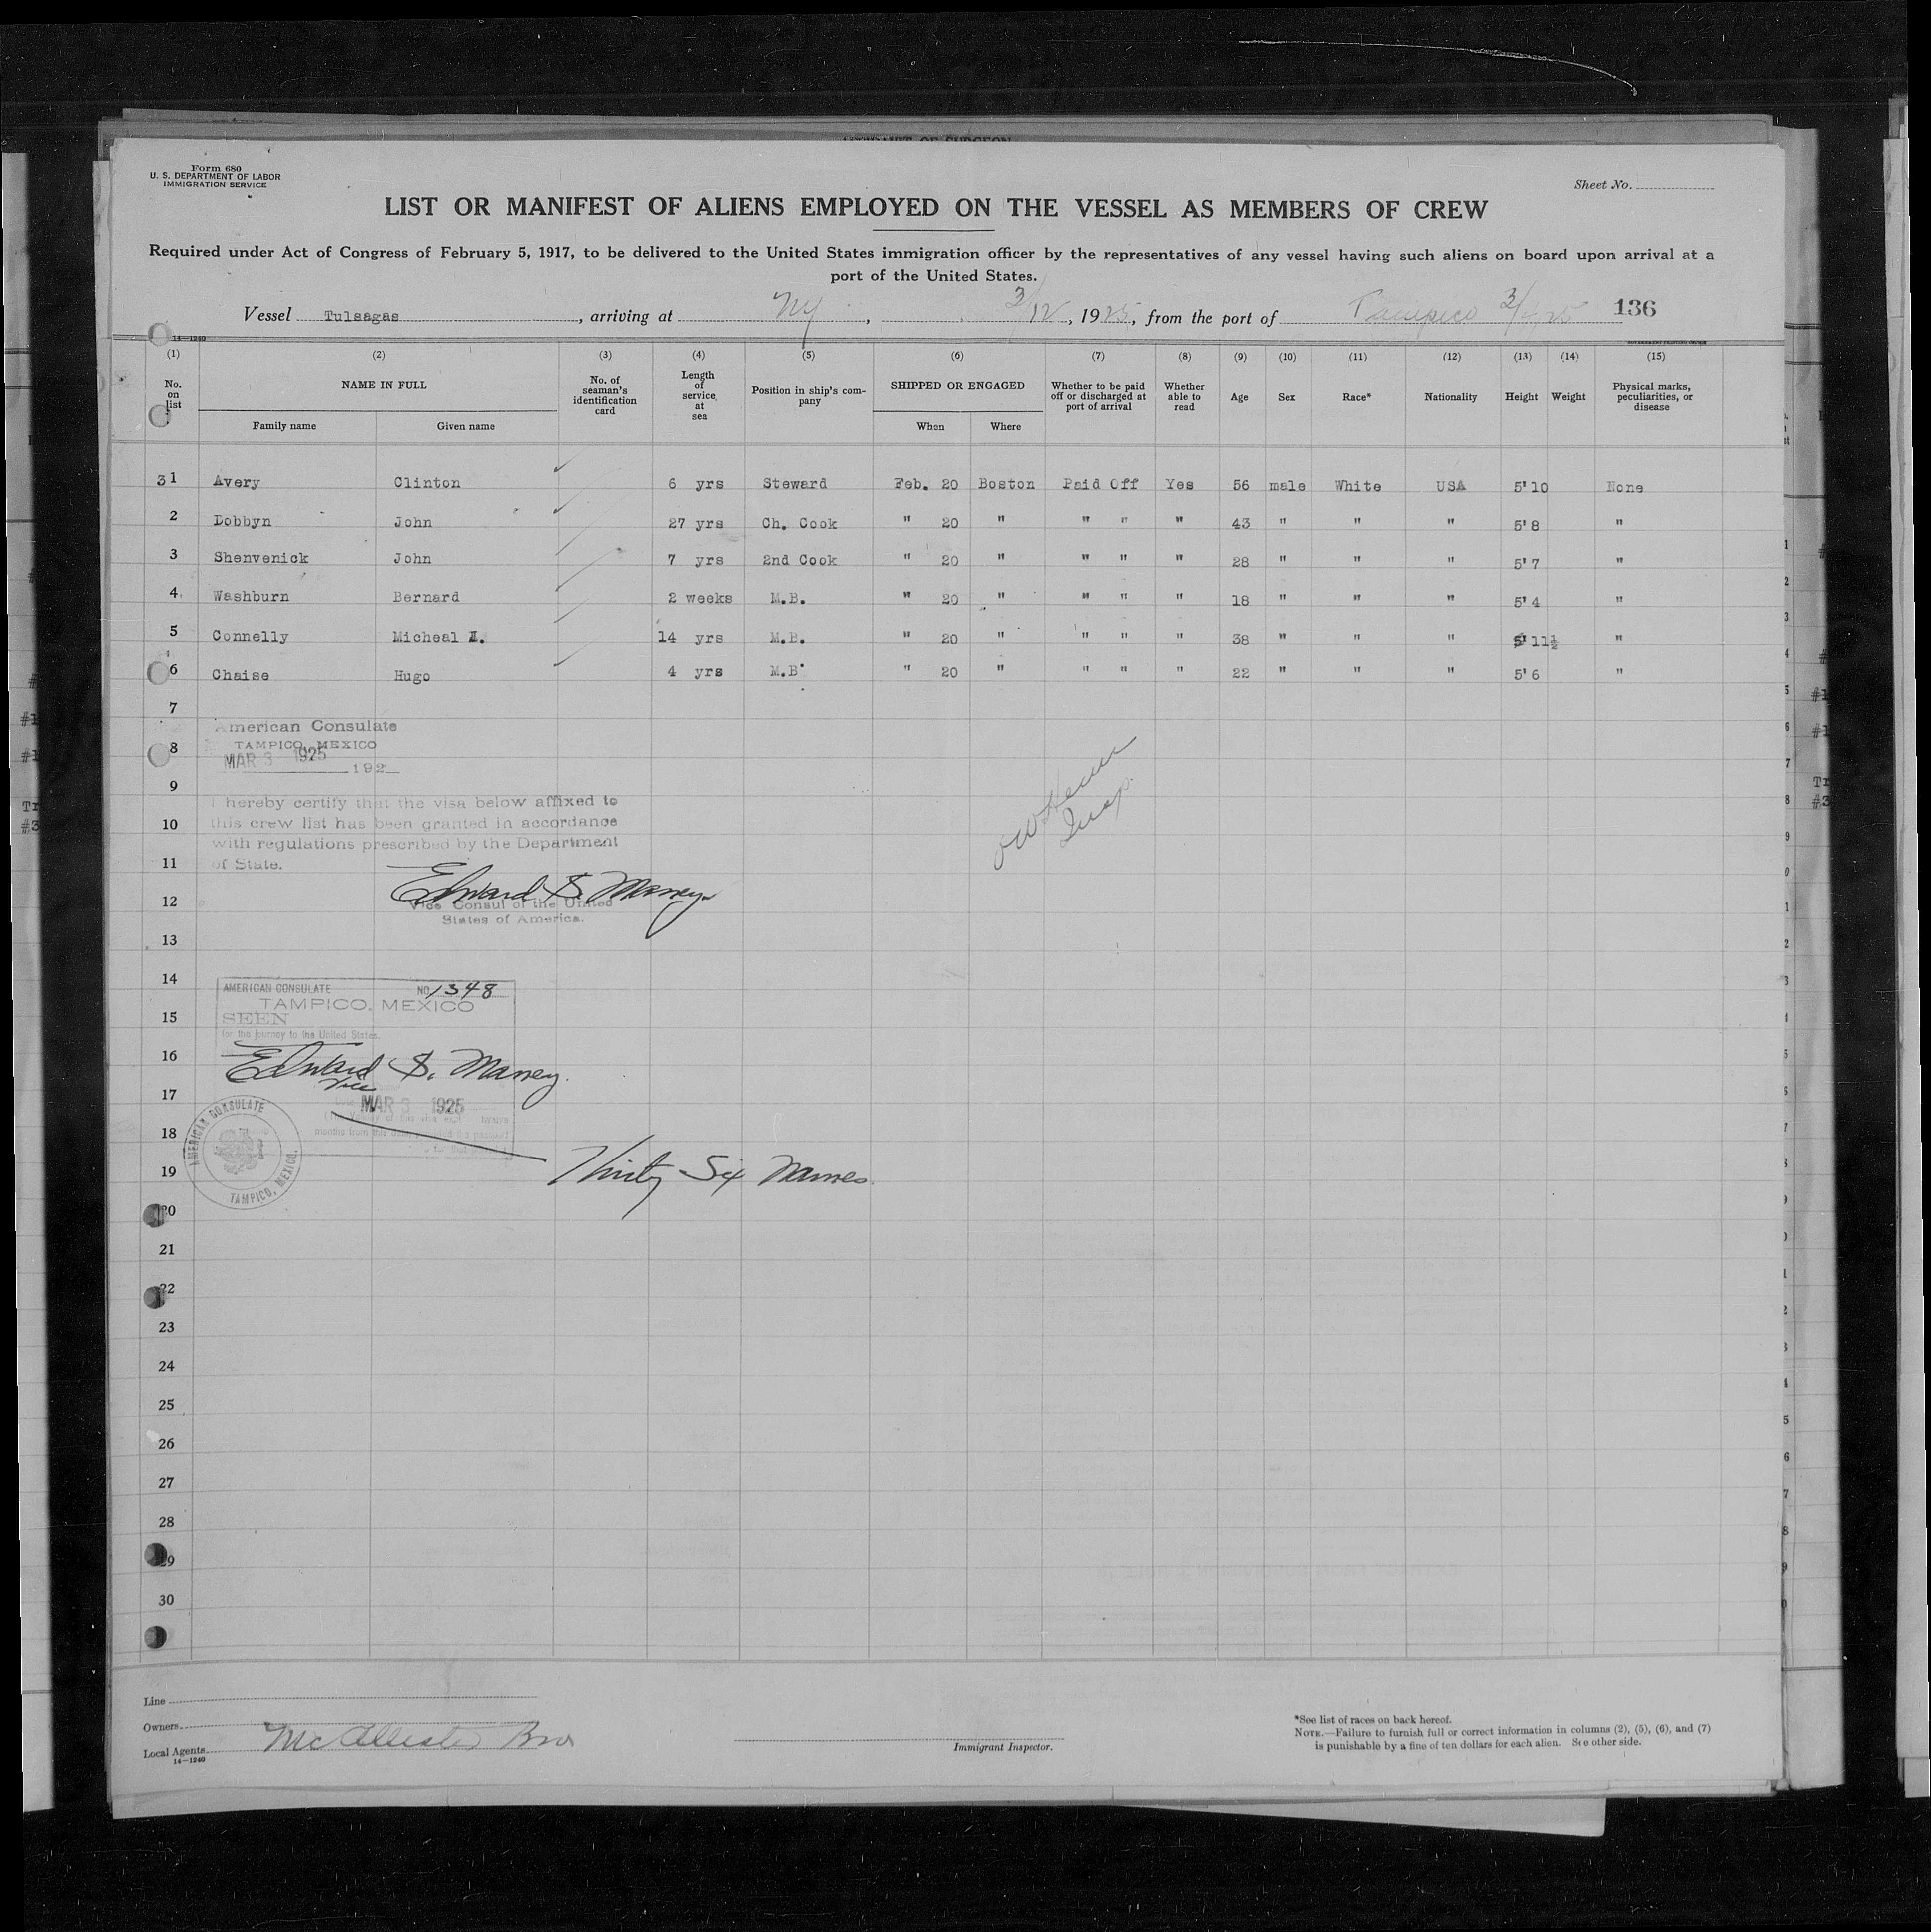 Form 680
U. S. DEPARTMENT OF LABOR
IMMIGRATION SERVICE
Sheet No.
LIST OR MANIFEST OF ALIENS EMPLOYED ON THE VESSEL AS MEMBERS OF CREW
Required under Act of Congress of February 5, 1917, to be delivered to the United States immigration officer by the representatives of any vessel having such aliens on board upon arrival at a
port of the United States.
Vessel Tulsagas, arriving at NY, 3/12, 1925, from the port of Tampico 3/4/25 136
14—1240
(1) (2) (3) (4) (5) (6) (7) (8) (9) (10) (11) (12) (13) (14) (15)
No. on list NAME IN FULL No. of seaman's identification card Length of service at sea Position in ship's company SHIPPED OR ENGAGED Whether to be paid off or discharged at port of arrival Whether able to read Age Sex Race* Nationality Height Weight Physical marks, peculiarities, or disease
Family name Given name When Where
31 Avery Clinton 6 yrs Steward Feb. 20 Boston Paid Off Yes 56 male White USA 5'10 None
2 Dobbyn John 27 yrs Ch. Cook " 20 " " " " 43 " " " 5'8 "
3 Shenvenick John 7 yrs 2nd Cook " 20 " " " " 28 " " " 5'7 "
4 Washburn Bernard 2 weeks M.B. " 20 " " " " 18 " " " 5'4 "
5 Connelly Micheal 14 yrs M.B. " 20 " " " " 38 " " " 5'11½ "
6 Chaise Hugo 4 yrs M.B. " 20 " " " " 22 " " " 5'6 "
7
American Consulate
8 TAMPICO, MEXICO
MAR 3 1925
192
9
I hereby certify that the visa below affixed to
10 this crew list has been granted in accordance
with regulations prescribed by the Department
11 of State.
Edward S. Maney
12 Vice Consul of the United
States of America.
13
14 AMERICAN CONSULATE NO. 1348
TAMPICO, MEXICO
15 SEEN
for the journey to the United States.
16 Edward S. Maney.
Vice
17 MAR 3 1925
18
AMERICAN CONSULATE
TAMPICO, MEXICO.
19 Thirty Six Names
20
21
22
23
24
25
26
27
28
29
30
Line
Owners
Local Agents McAllister Bros
14—1240
Immigrant Inspector.
*See list of races on back hereof.
NOTE.—Failure to furnish full or correct information in columns (2), (5), (6), and (7)
is punishable by a fine of ten dollars for each alien. See other side.